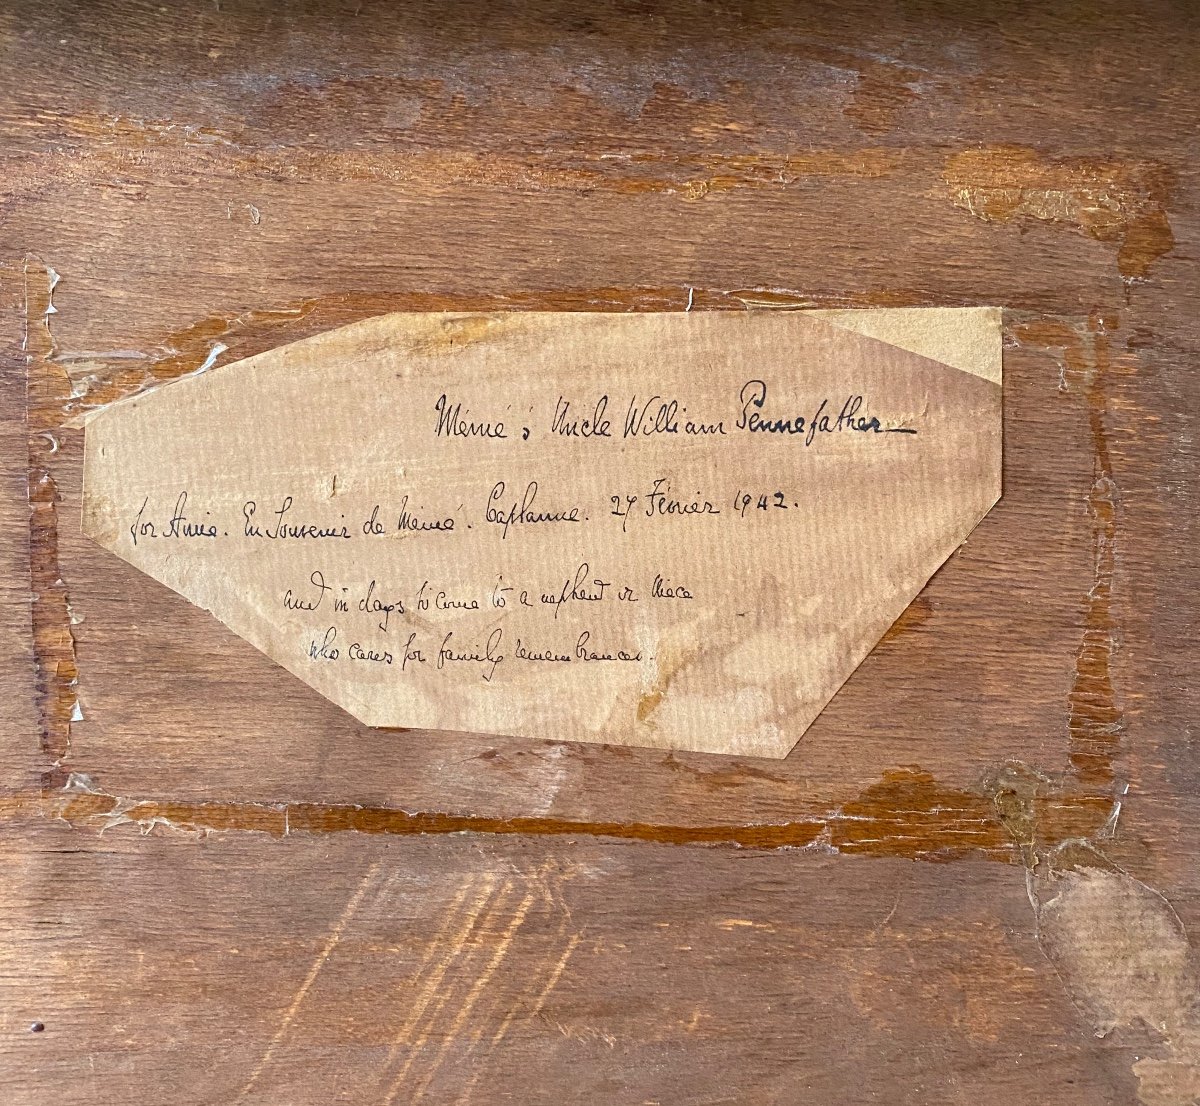 Mémé's Uncle William Pennefather
for Amie. En Souvenir de Mémé. Caplanne. 27 Février 1942.
and in days to come to a nephew or niece
who cares for family remembrances.